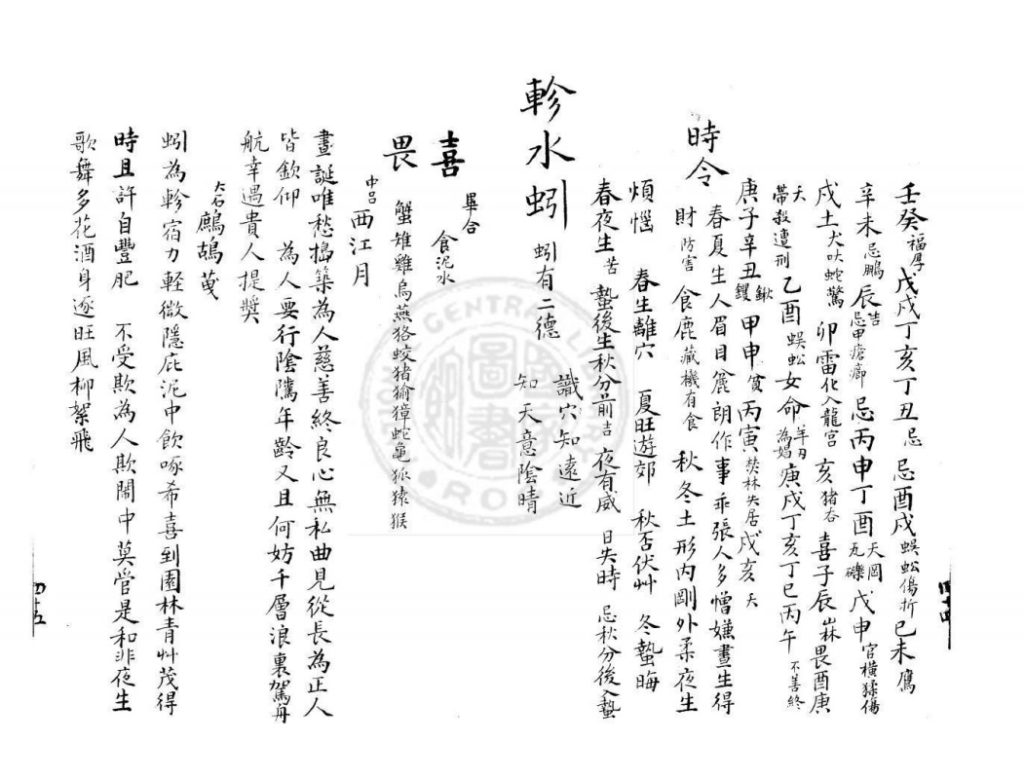 壬癸福厚戊戌丁亥丁丑忌 忌酉戌蜈蚣傷折己未鷹
辛未忌鵬辰吉忌甲瘡癤忌丙申丁酉天岡瓦礫戊申官橫猱傷
戌土犬吠蛇驚 卯雷化入龍宮亥猪吞喜子辰山林畏酉庚
天帶殺遭刑乙酉蜈蚣女命年月為娼庚戌丁亥丁巳丙午不善終
庚子辛丑鍬钁甲申貧丙寅焚林失居戌亥天
時令 春夏生人眉目疎朗作事乖張人多憎嫌晝生得
財防害食鹿藏機有食 秋冬土形內剛外柔夜生
煩惱 春生離穴 夏旺遊郊 秋否伏艸 冬蟄晦
春夜生苦 蟄後生秋分前吉夜有威 日失時 忌秋分後入蟄
軫水蚓 蚓有二德 識穴知遠近
知天意陰晴
喜 畢合 食泥水
畏 蟹雉雞烏燕狢蛟猪㺄獐蛇龜狐猿猴
中呂西江月
晝誕唯愁搗築為人慈善終良心無私曲見從長為正人
皆欽仰 為人要行陰隲年齡又且何妨千層浪裏駕舟
航幸遇貴人提獎
大石鷓鴣蔓
蚓為軫宿力輕微隱庇泥中飲啄希喜到園林青艸茂得
時且許自豐肥 不受欺為人欺鬧中莫管是和非夜生
歌舞多花酒身逐旺風柳絮飛
四十四
四十五